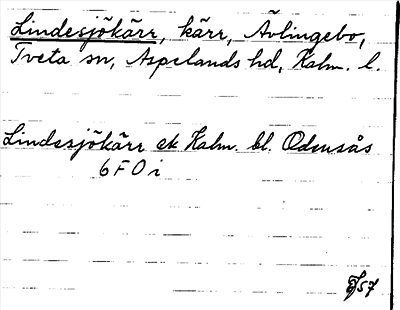 Lindesjökärr, kärr, Ävlingebo,
Tveta sn, Aspelands hd, Kalm. l.
Lindesjökärr ek Kalm. bl. Odensås
6 F 0 i
57